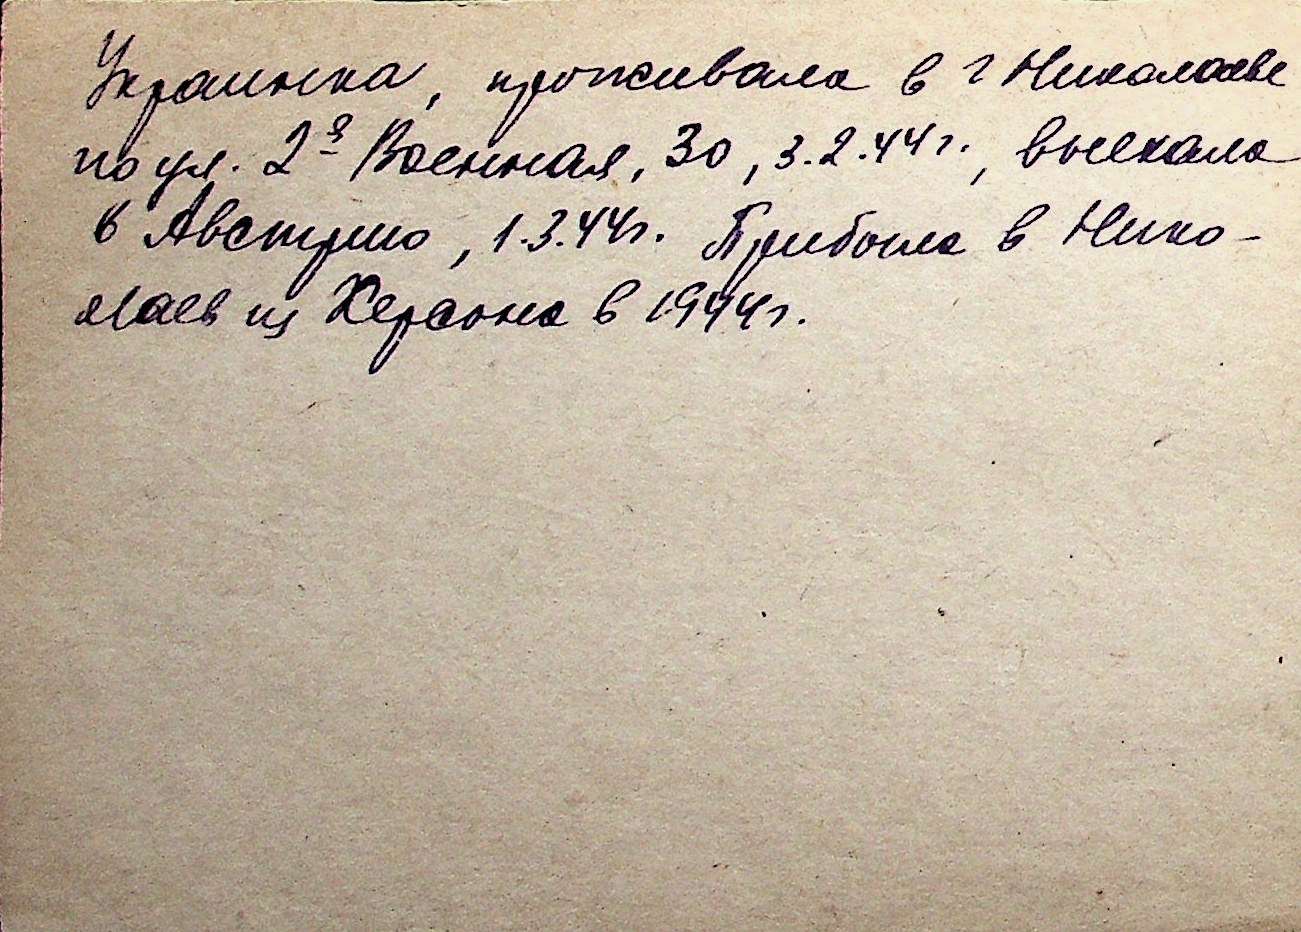 Украинка, проживала в г Николаеве
по ул. 2я Военная, 30, 3.2.44 г., выехала
в Австрию, 1.3.44г. Прибыла в Нико-
лаев из Херсона в 1944г.